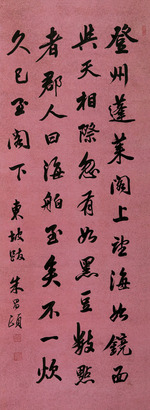 登州蓬莱阁上望海如镜面
与天相际忽有如黑豆数点
者郡人曰海舶至矣不一炊
久已至阁下 东坡跋 朱昌颐